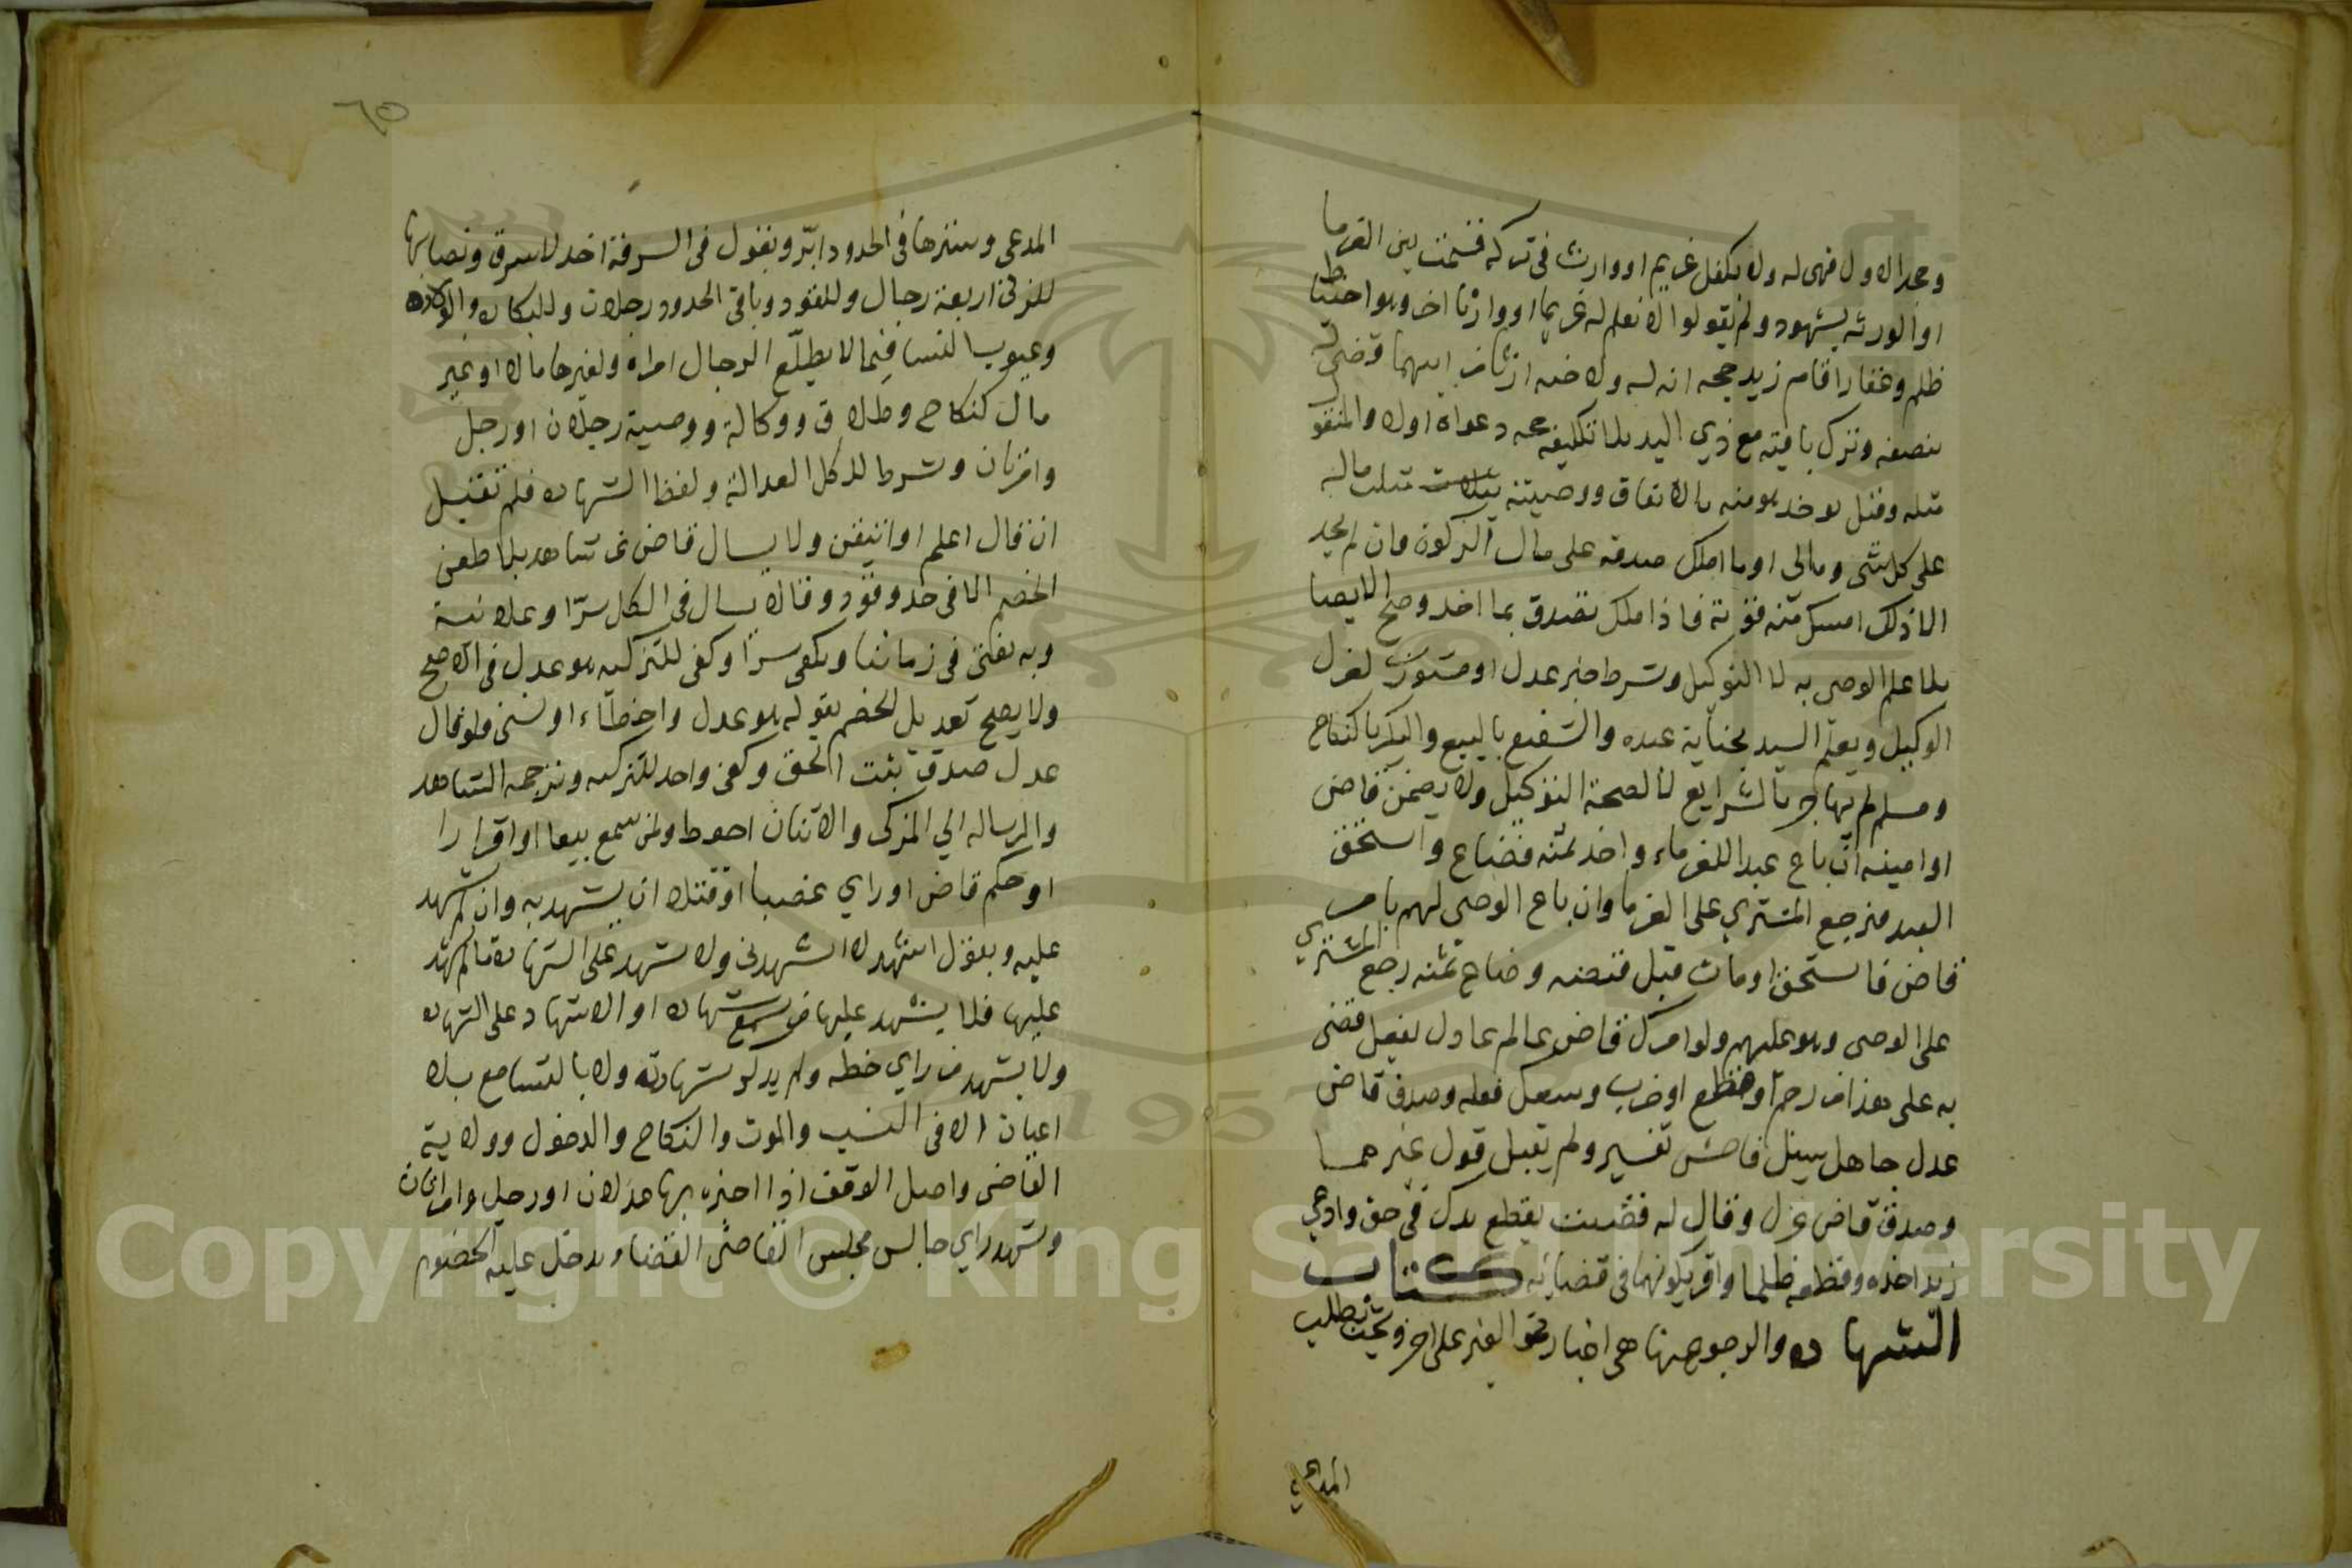 وحد الاول فهى له ولا يكفل غريم او وارث فى تركه قسمت بين الغرما
او الورثه بشهود ولم يقولوا لا نعلم له غريما او وارثا اخر وهو احتياط
ظلم وعقارا اقام زيد حجه انه له ولاخيه ارثا من ابيهما قضى له
بنصفه وترك باقيه مع ذي اليد بلا تكليفه دعواه اولا والمنقول
مثله وقيل يوخذ هو منه بالاتفاق ووصيته بثلث ماله
على كل شى ومالى او ما املك صدقه على مال الزكوة فان لم يجد
الا ذلك امسك منه قوته فاذا ملك تصدق بما اخذ وصح الايصا
بلا علم الوصى به لا التوكيل وشرط خبر عدل او مستورين لعزل
الوكيل ويعلم السيد بجناية عبده والشفيع بالبيع والبكر بالنكاح
ومسلم لم يهاجر بالشرايع لا لصحة التوكيل ولا يضمن قاض
او امينه ان باع عبدا للغرماء واخذ ثمنه فضاع واستحق
العبد فيرجع المشتري على الغرما وان باع الوصى لهم بامر
قاض فاستحق او مات قبل قبضه وضاع ثمنه رجع المشتري
على الوصى وهو عليهم ولو امرك قاض عالم عادل بفعل قضى
به على هذا من رجم او قطع او ضرب وسعك فعله وصدق قاض
عدل جاهل سيل فاحسن تفسير ولم يقبل قول غيرهما
وصدق قاض عزل وقال له قضيت بقطع يدك فى حق وادعي
زيد اخذه وقطعه ظلما واقر بكونهما فى قضايه كتاب
الشهاده والرجوع عنها هى اخبار بحق الغير على اخر وتجب بطلب
المدعي
٦٥
المدعى وسترها فى الحدود ابر ويقول فى السرقة اخذ لا سرق ونصابها
للزنى اربعة رجال وللقود وباقى الحدود رجلان وللبكاره والولاده
وعيوب النسا فيما لا يطلع الرجال امراة ولغيرها مالا او غير
مال كنكاح وطلاق ووكالة ووصية رجلان او رجل
وامراتان وشرط للكل العدالة ولفظ الشهاده فلم تقبل
ان قال اعلم او اتيقن ولا يسال قاض عن شاهد بلا طعن
الخصم الا فى حد وقود وقالا يسال فى الكل سرا وعلانية
وبه يفتى فى زماننا ويكفى سرا وكفى للتزكيه هو عدل فى الاصح
ولا يصح تعديل الخصم بقوله هو عدل واخطاء او نسى فلو قال
عدل صدق ثبت الحق وكفى واحد للتزكيه وترجمه الشاهد
والرساله الي المزكى والاثنان احوط ولمن سمع بيعا او اقرارا
او حكم قاض او راي غصبا او قتلا ان يشهد به وان لم يشهد
عليه ويقول اشهد لا اشهدنى ولا يشهد على الشهاده ما لم يشهد
عليها فلا يشهد عليها من سمع شهاده او الاشهاد على الشهاده
ولا يشهد من راي خطه ولم يذكر شهادته ولا بالتسامع بلا
اعيان الا فى النسب والموت والنكاح والدخول وولاية
القاضى واصل الوقف اذا اخبره بها عدلان او رجل وامراتان
وشهد راي جالس مجلس القاضى القضا ويدخل عليه الخصوم
Copyright © King Saud University
1957